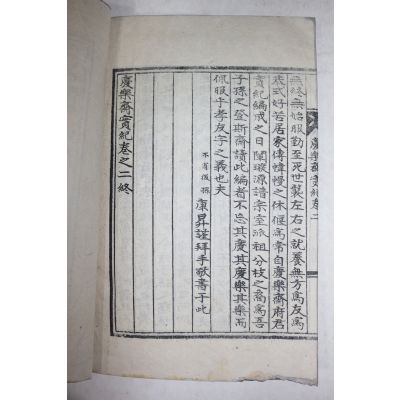 慶樂齋實紀卷二
無終無始服勤至死世襲左右之就養無方爲友爲
式好若居家傳幃幔之休偃寫常自慶樂齋府君
實紀編成之日閱璇源譜宗室派祖分枝之裔爲吾
子孫之登斯齋讀此編者不忘其慶其慶樂其樂而
佩服乎孝友字之義也夫
不肖後孫 康昇謹拜手敬書于此
慶樂齋實紀卷之二終